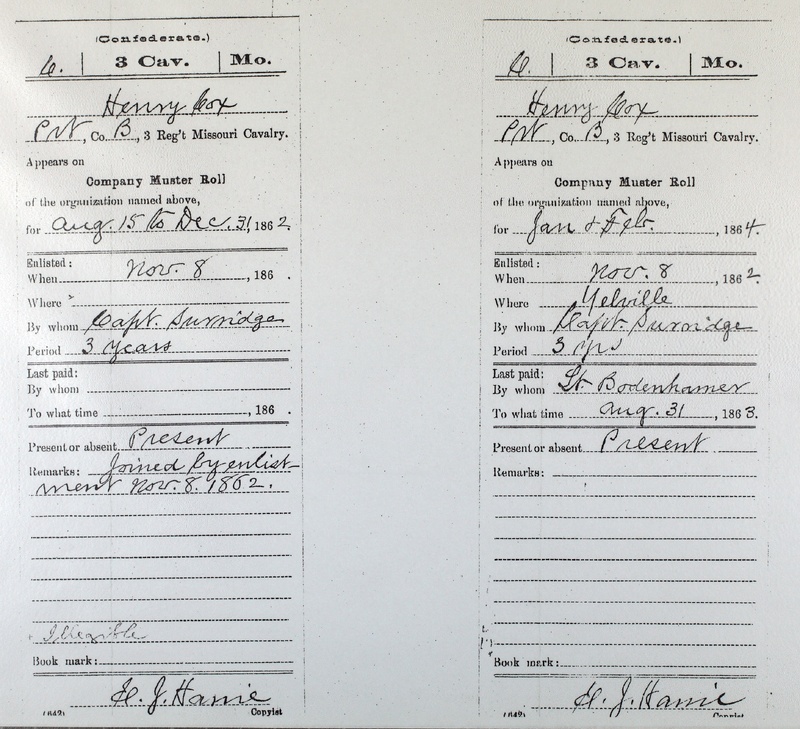 (Confederate.)
C. | 3 Cav. | Mo.
Henry Cox
Pvt, Co. B, 3 Reg't Missouri Cavalry.
Appears on
Company Muster Roll
of the organization named above,
for Aug. 15 to Dec. 31, 1862.
Enlisted:
When Nov. 8, 186 .
Where
By whom Capt. Surridge
Period 3 years
Last paid:
By whom
To what time , 186 .
Present or absent Present
Remarks: Joined by enlist-
ment Nov. 8. 1862.
Illegible
Book mark:
J. Harrie
(642) Copyist
(Confederate.)
C. | 3 Cav. | Mo.
Henry Cox
Pvt, Co. B, 3 Reg't Missouri Cavalry.
Appears on
Company Muster Roll
of the organization named above,
for Jan & Feb. , 1864.
Enlisted:
When Nov. 8, 1862.
Where Yelville
By whom Capt. Surridge
Period 3 yrs
Last paid:
By whom Lt. Bodenhamer
To what time Aug. 31, 1863.
Present or absent Present
Remarks:
Book mark:
J. Harrie
(642) Copyist